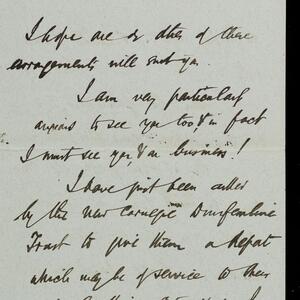 I hope one or other of these
arrangements will suit you.
I am very particularly
anxious to see you too, & in fact
I must see you, & on business!
I have just been asked
by the new Carnegie Dunfermline
Trust to give them a Report
which may be of service to their